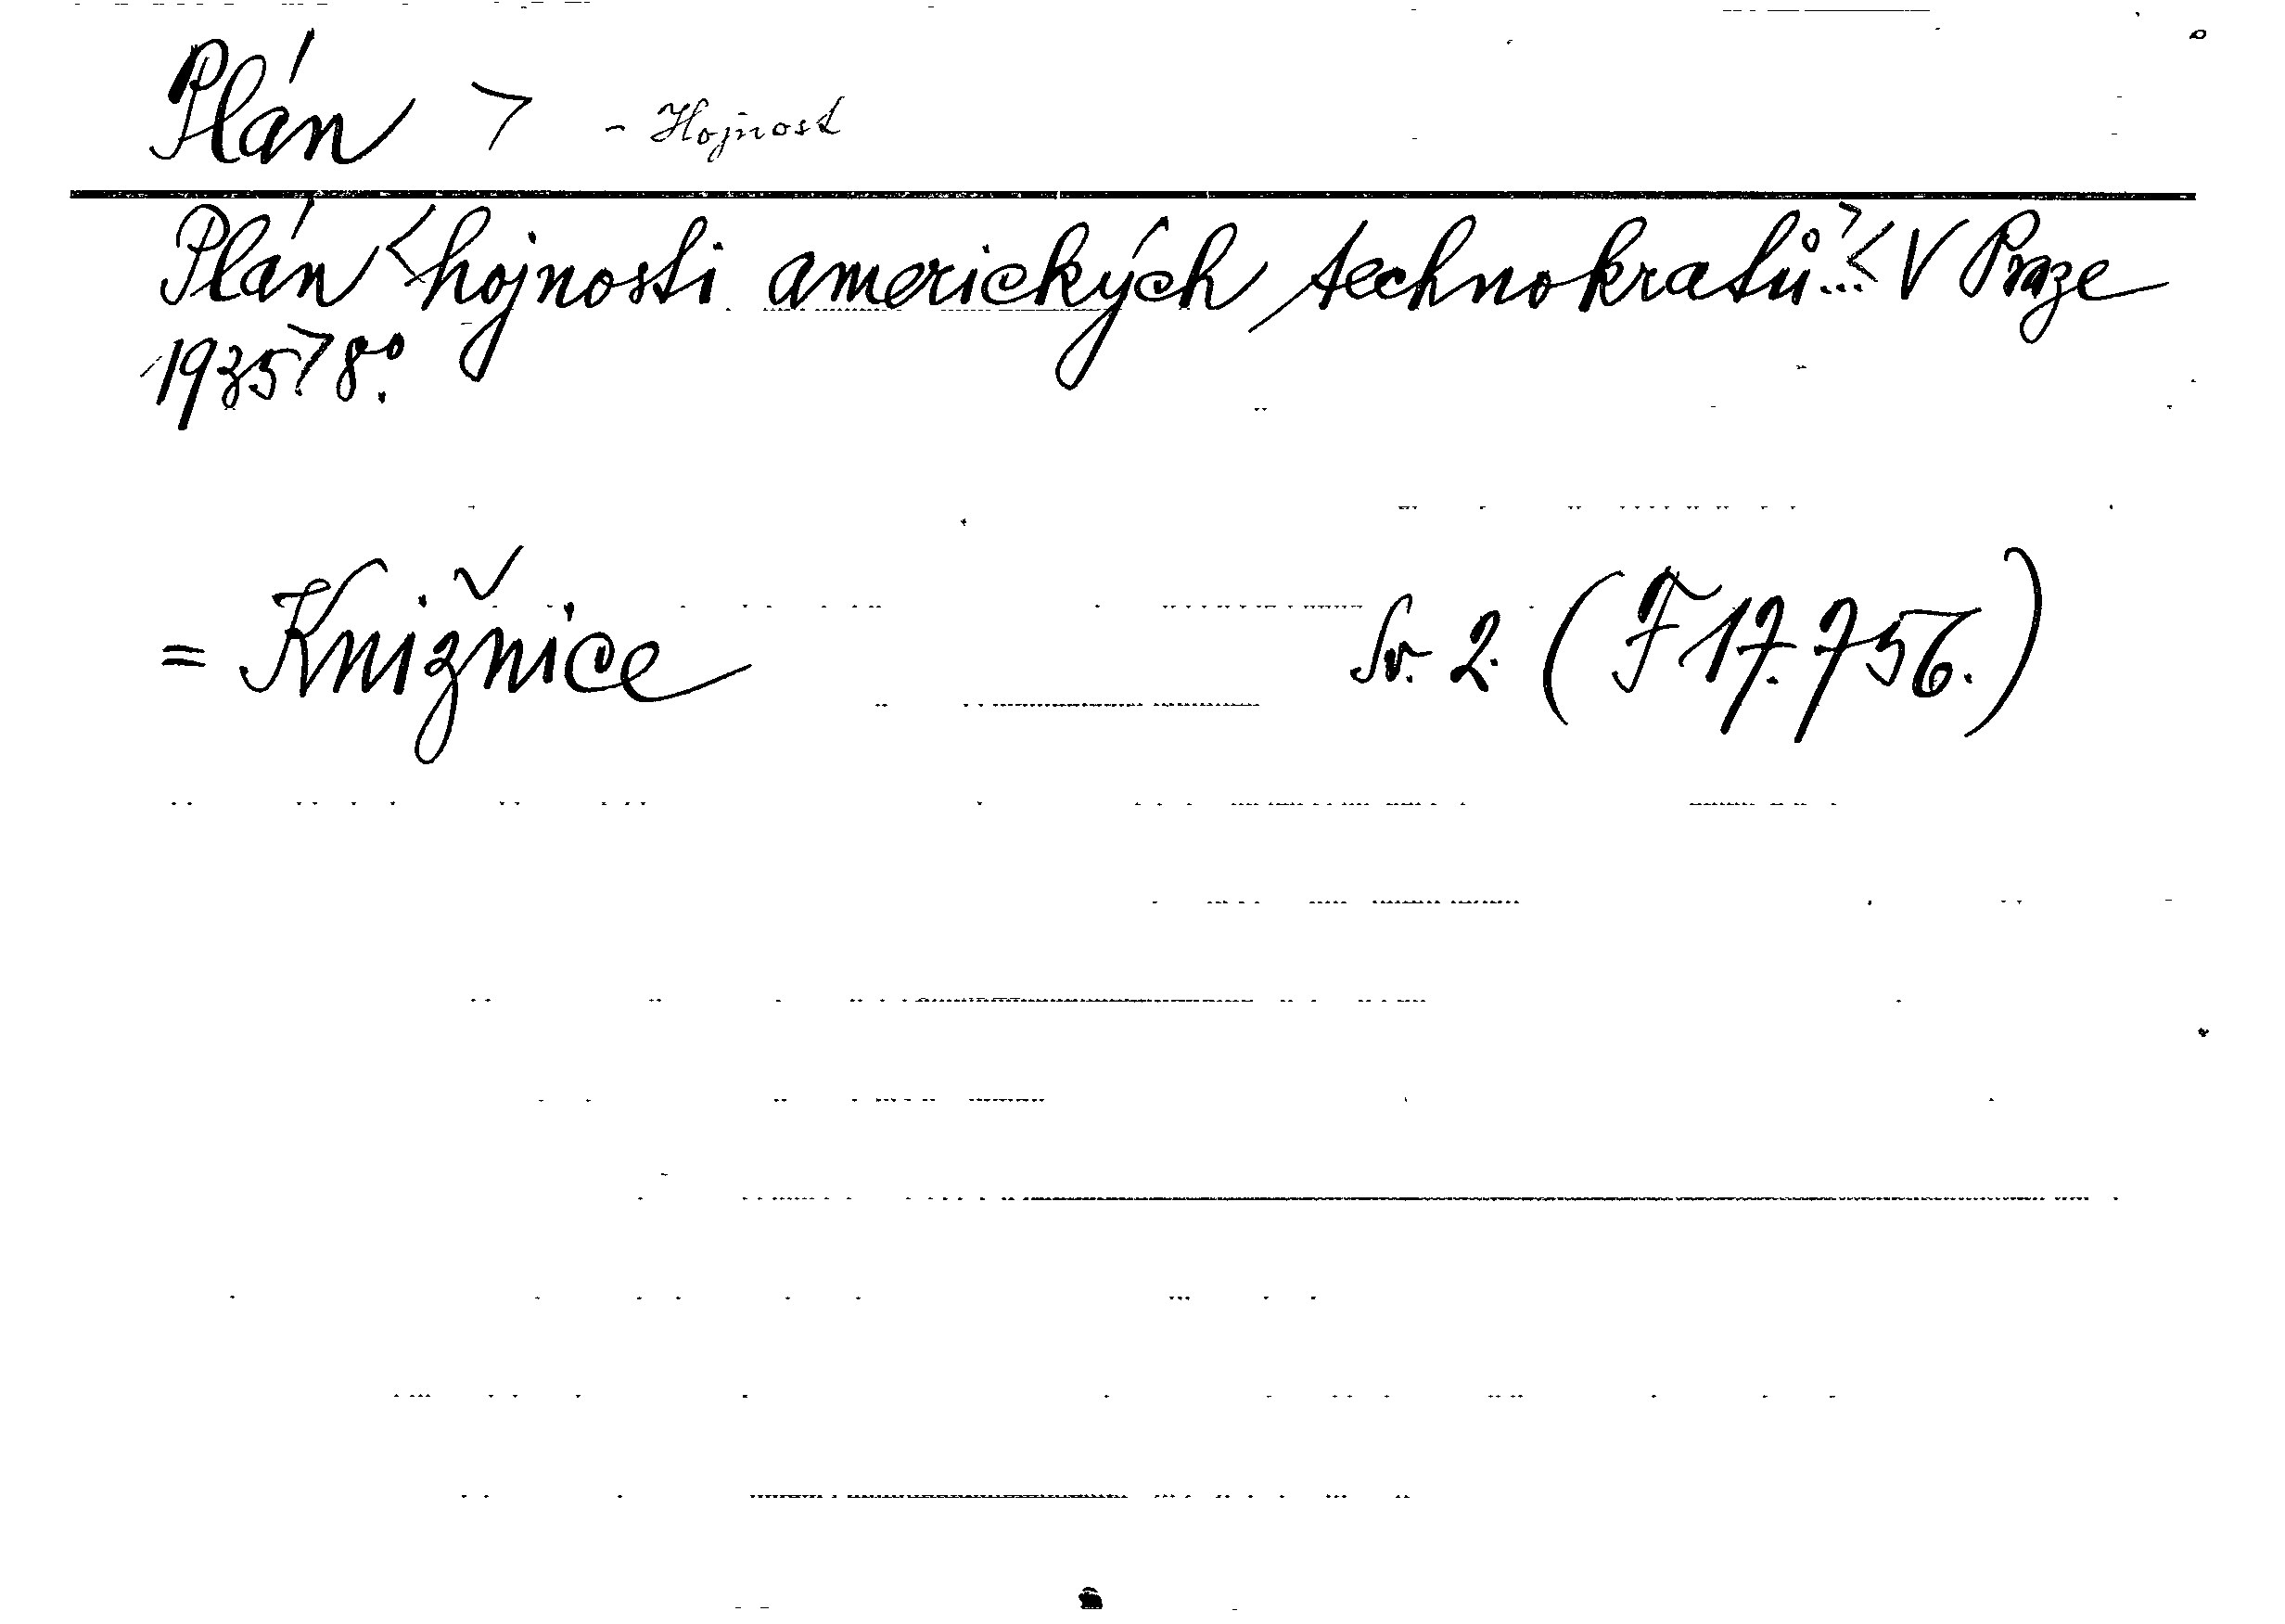 Plán > - Hojnost
Plán <hojnosti amerických technokratů...> < V Praze
1935> 8°.
= Knižnice Sv. 2. (F 17.756.)